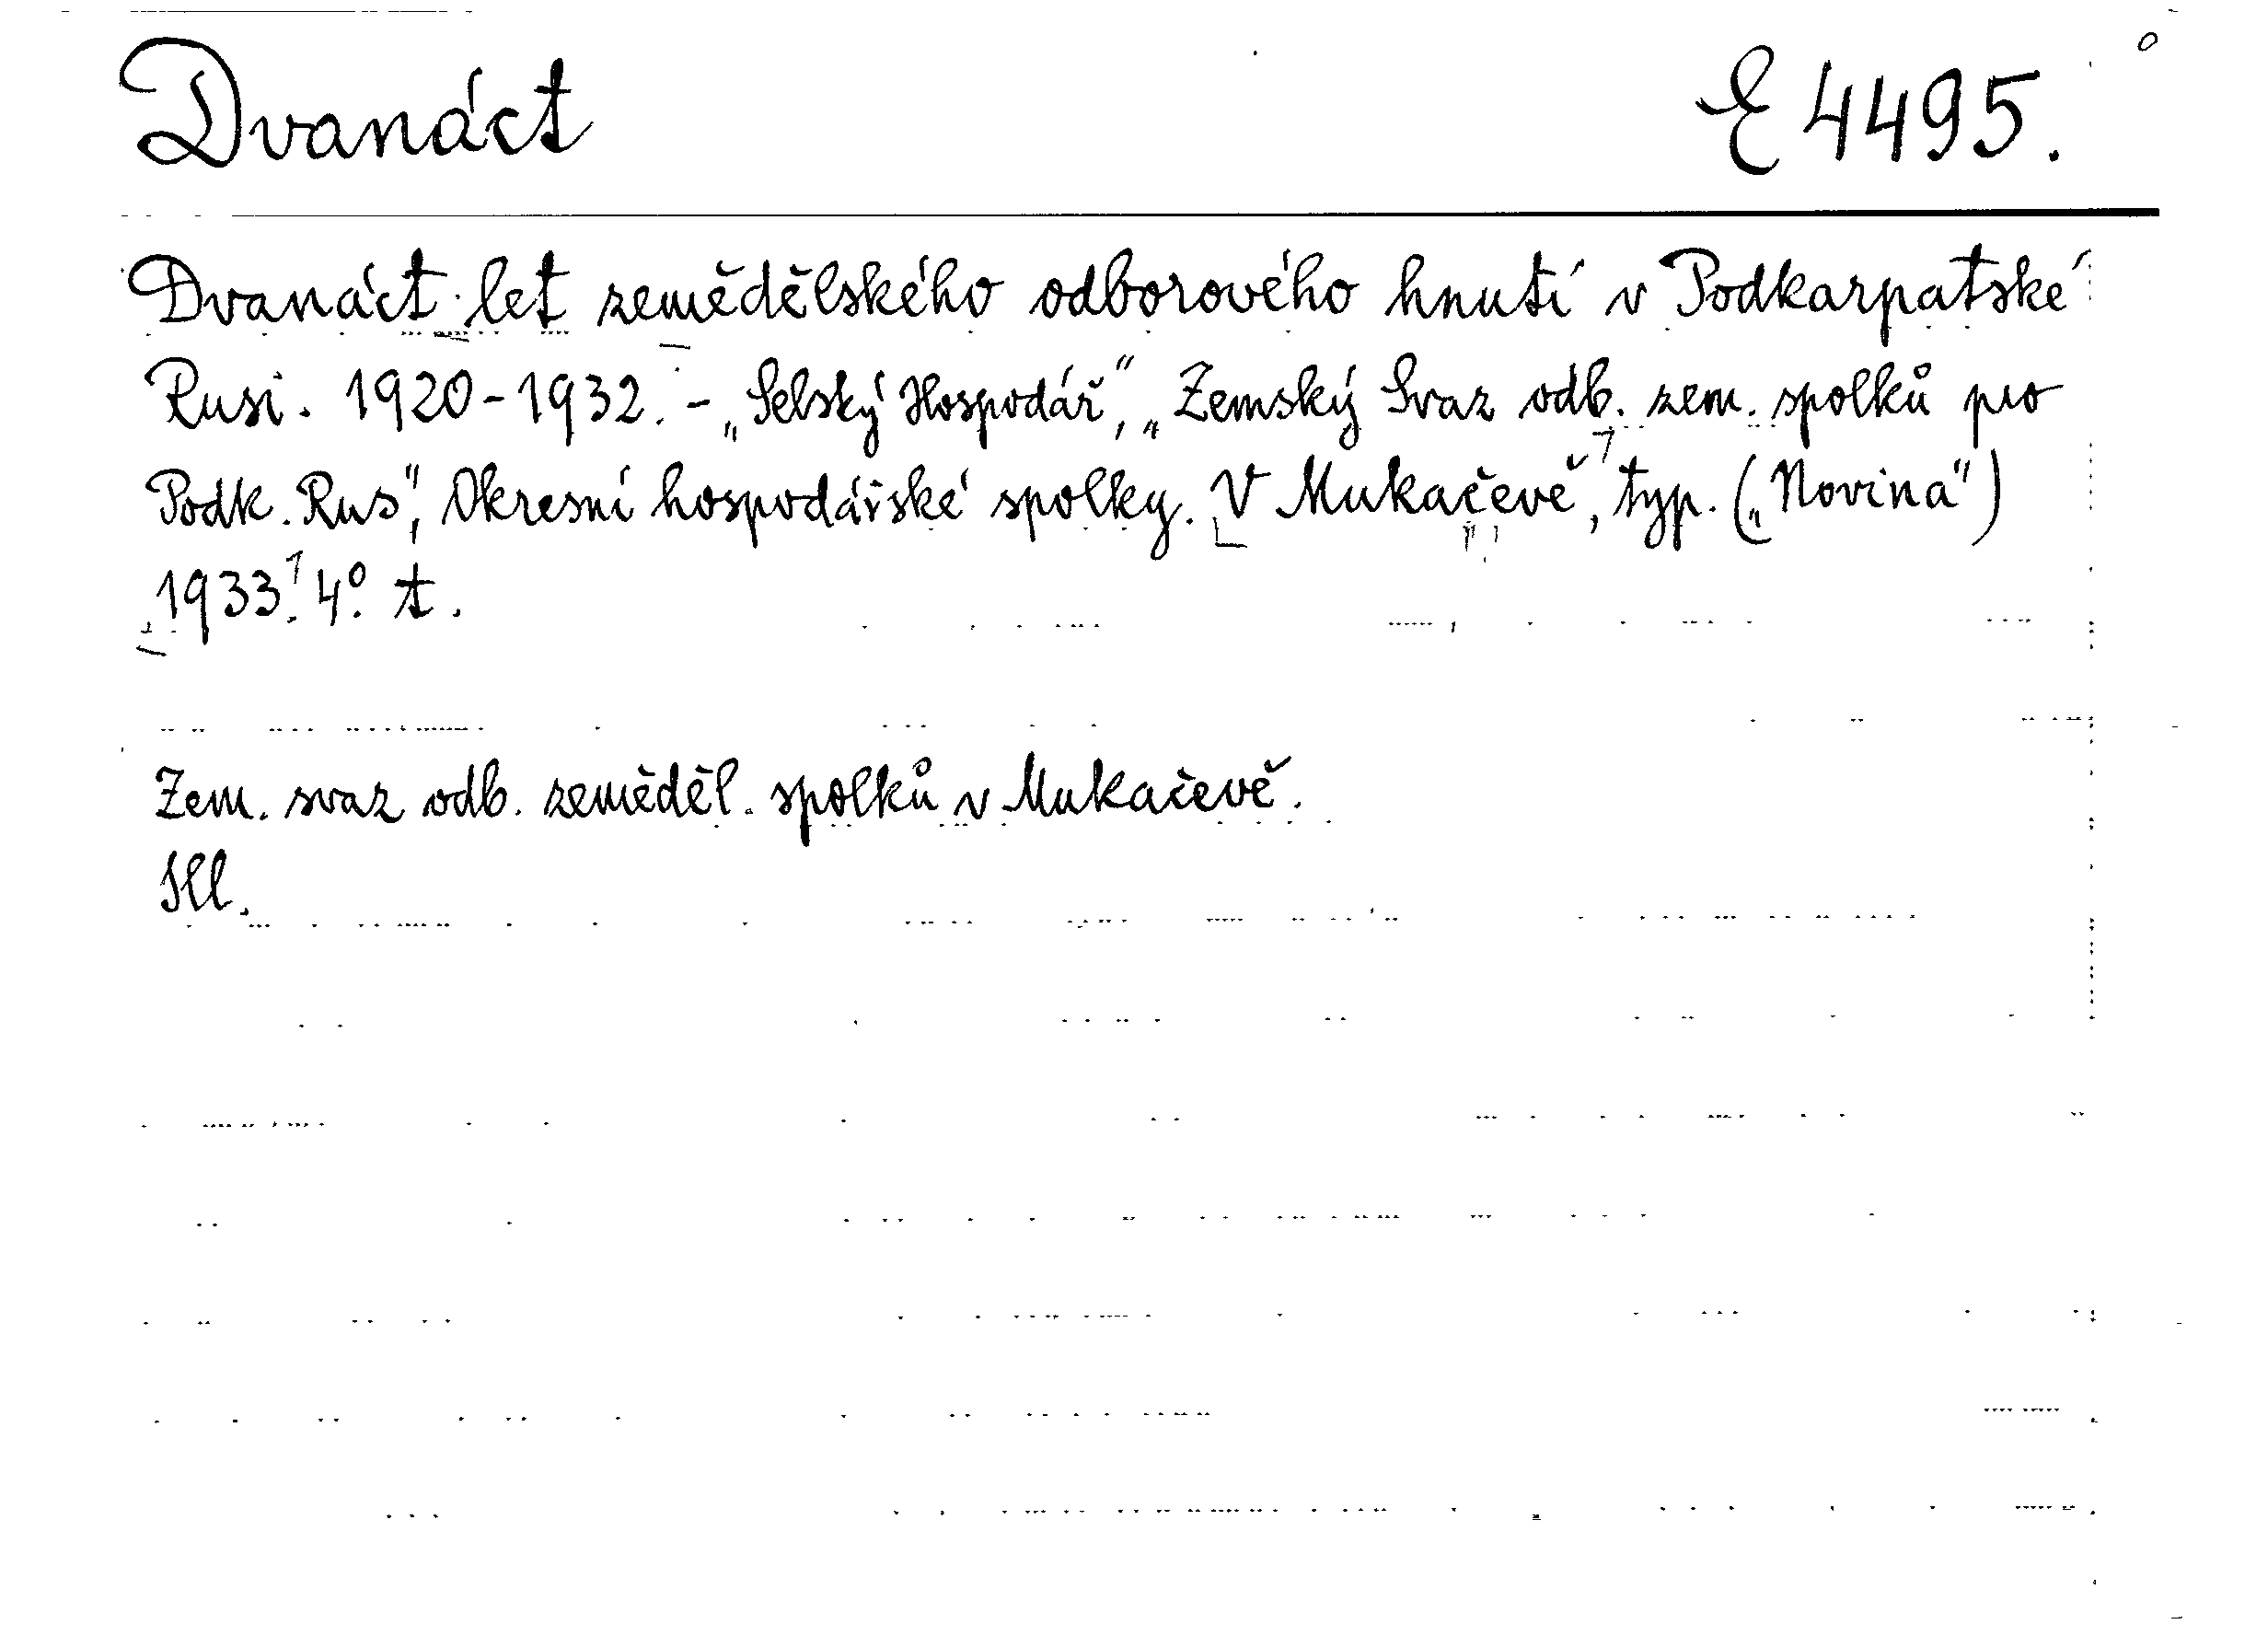 Dvanáct E 4495.
Dvanáct let zemědělského odborového hnutí v Podkarpatské
Rusi. 1920-1932. - „Selský Hospodář", „Zemský Svaz odb. zem. spolků pro
Podk. Rus", Okresní hospodářské spolky. V Mukačevě, typ. („Novina")
1933. 4° t.
Zem. svaz odb. zeměděl. spolků v Mukačevě.
Ill.